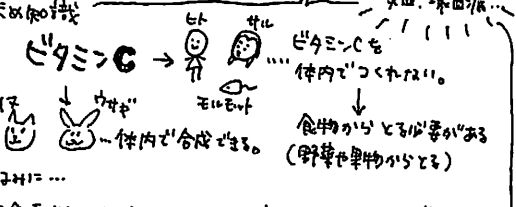 め知識
ビタミンC → ヒト サル モルモット ‥‥ ビタミンCを
体内でつくれない。
↓
食物からとる必要がある
(野菜や果物からとる)
↓
ウサギ …体内で合成できる。
みに…